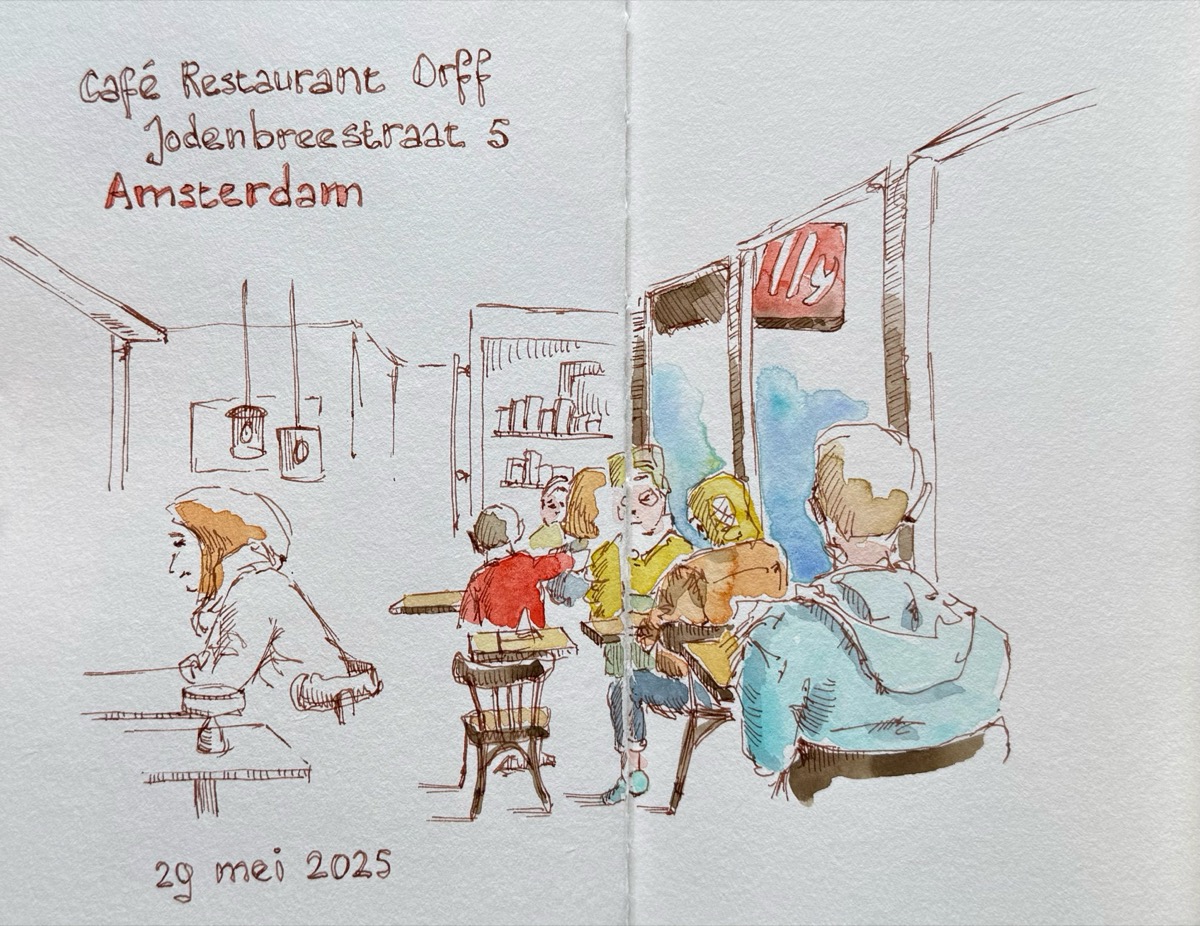 Café Restaurant Orff
Jodenbreestraat 5
Amsterdam
illy
29 mei 2025